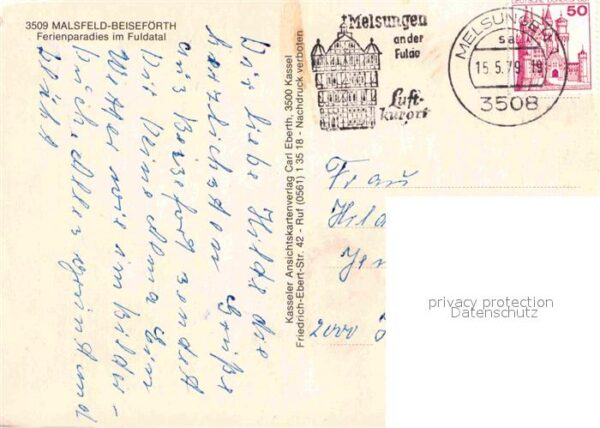 3509 MALSFELD-BEISEFÖRTH
Ferienparadies im Fuldatal
Melsungen
an der
Fulda
Luft-
kurort
MELSUNGEN
15.5.79 - 19
3508
50
Kasseler Ansichtskartenverlag Carl Eberth, 3500 Kassel
Friedrich-Ebert-Str. 42 - Ruf (0561) 1 35 18 - Nachdruck verboten
Dir liebe Hilde die
herzlichsten Grüße
aus Beiseförth sendet
Dir Deine
Wetter wie im Bilder-
buche alles grünt und
blüht
Frau
2000
privacy protection
Datenschutz